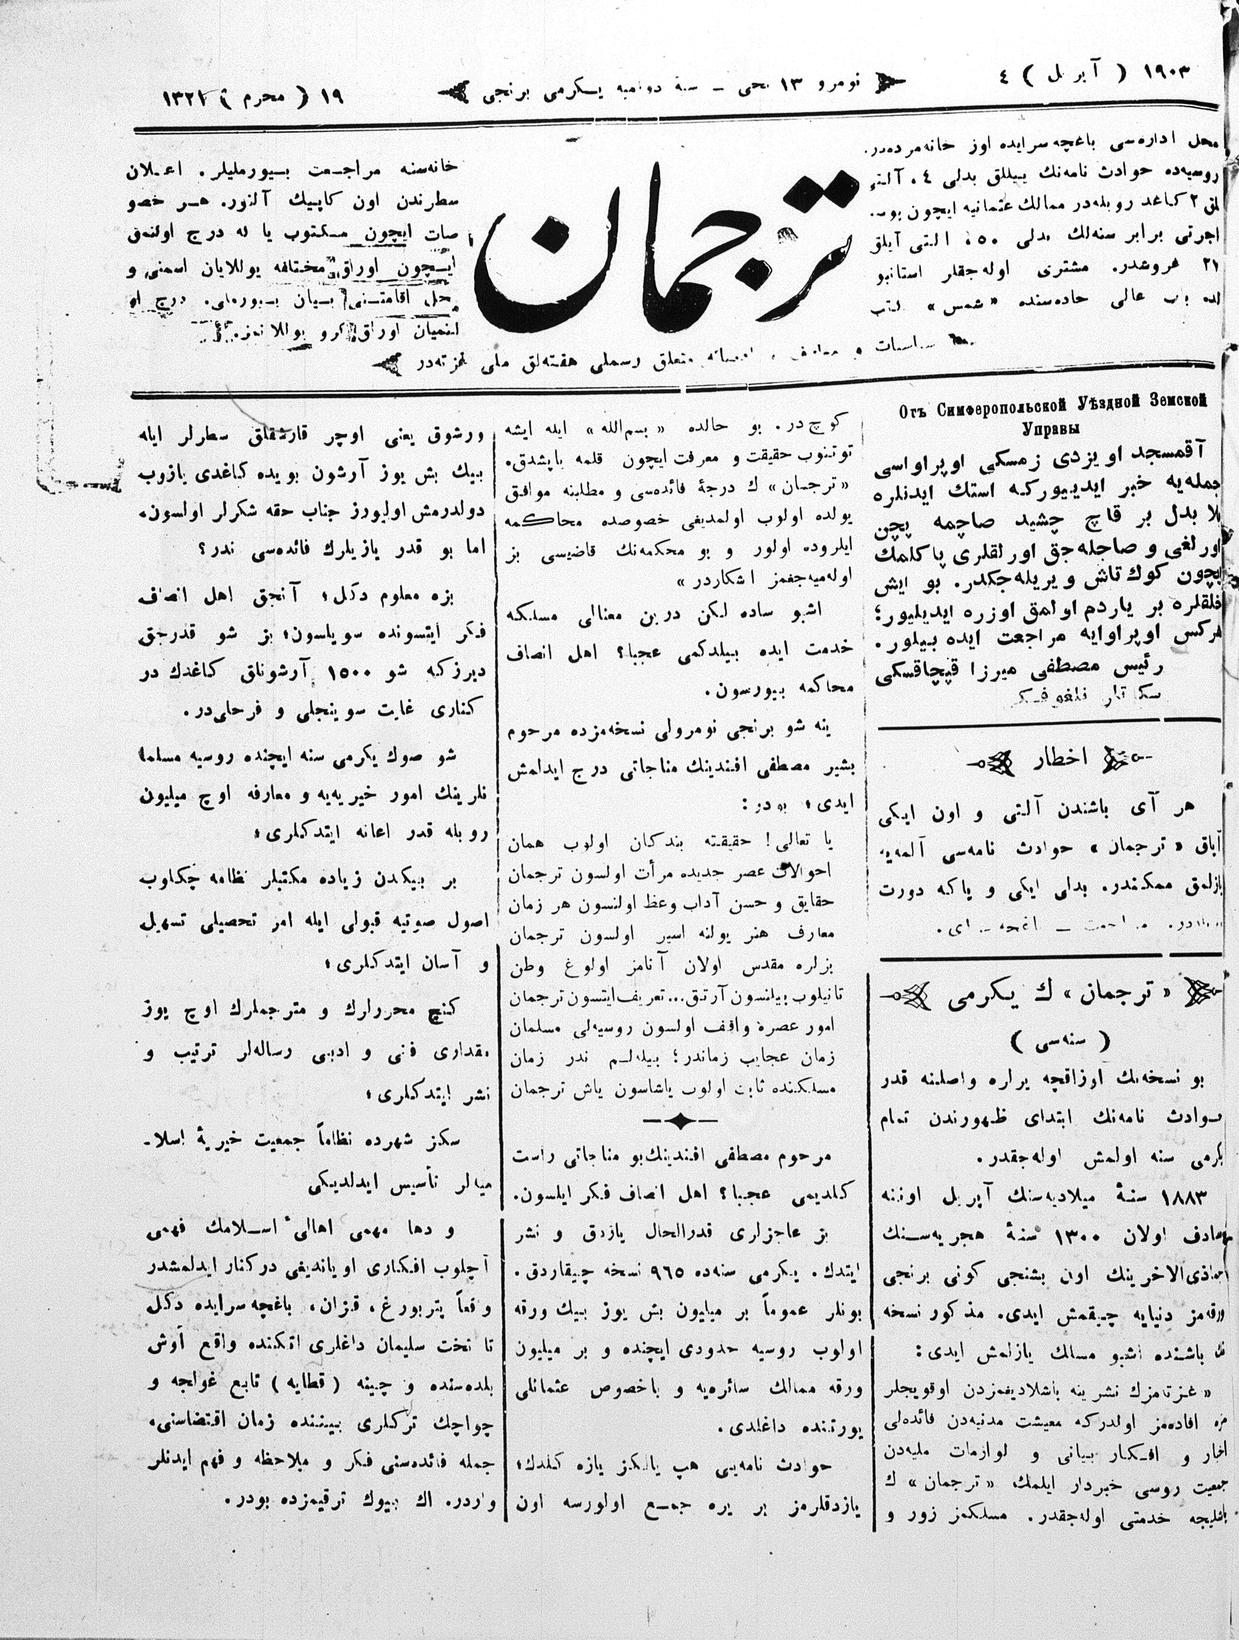 ١٩٠٣ ( آپریل ) ٤
نومرو ١٣ نجی ـ سنه دوامیه یـکرمی برنجی
١٩ ( محرم ) ١٣٢١
محل اداره‌سی باغچه‌سرایده اوز خانه‌مزده‌در.
روسیه‌ده حوادث نامه‌نك ییللق بدلی ٤، آلتی
لق ٢ کاغد روبله‌در ممالك عثمانیه ایچون بوسـ
اجرتی برابر سنه‌لك بدلی ٥٠، التی آیلق
٢١ غروشدر. مشتری اوله‌جقلر استانبو
لده باب عالی جاده‌سنده «شمس» کتب
ترجمان
خانه‌سنه مراجعت بیورملیلر. اعلان
سطرندن اون کاپیك آلنور. هر خصو
صات ایچون مکتوب یا له درج اولنمق
ایچون اوراق مختلفه یوللایان اسمنی و
محل اقامتنی بیان بیورملی. درج او
لنمیان اوراق کرو یوللانمز.
سیاسیات و معارف و ادبیاته متعلق رسملی هفته‌لق ملی غزته‌در
Отъ Симферопольской Уѣздной Земской
Управы
آقمسجد اویزدی زمسکی اوپراواسی
جمله‌یه خبر ایدییورکه استك ایدنلره
بلا بدل بر قاچ چشید صاچمه پچن
اورلغی و صاچله‌جق اورلقلری پاکلمك
ایچون کوك تاش ویریله‌جکدر. بو ایش
خلقلره بر یاردم اولمق اوزره ایدیلیور؛
هرکس اوپراوایه مراجعت ایده بیلور.
رئیس مصطفی میرزا قپچاقسکی
اخطار
هر آی باشندن آلتی و اون ایکی
آیلق «ترجمان» حوادث نامه‌سی آلمه‌یه
یازلمق ممکندر. بدلی ایکی و یاکه دورت
«ترجمان» ك یـکرمی
( سنه‌سی )
بو نسخه‌نك اوزاقچه یرلره واصلنه قدر
حوادث نامه‌نك ابتدای ظهورندن تمام
یکرمی سنه اولمش اوله‌جقدر.
١٨٨٣ سنۀ میلادیه‌سنك آپریل اوننه
مصادف اولان ١٣٠٠ سنۀ هجریه‌سنك
جماذی‌الاخرینك اون بشنجی کونی برنجی
ورقه‌مز دنیایه چیقمش ایدی. مذکور نسخه
نك باشنده اشبو مسلك یازلمش ایدی:
« غزته‌مزك نشرینه باشلادیغمزدن اوقویجلر
مزه افاده‌مز اولدرکه معیشت مدنیه‌دن فائده‌لی
اخبار و افکار بیانی و لوازمات ملیه‌دن
جمعیت روسی خبردار ایلمك «ترجمان» ك
باشلیجه خدمتی اوله‌جقدر. مسلکمز زور و
کوچ‌در. بو حالده «بسم‌الله» ایله ایشه
توتنوب حقیقت و معرفت ایچون قلمه یاپشدق.
«ترجمان» ك درجۀ فائده‌سی و مطلبنه موافق
یولده اولوب اولمدیغی خصوصده محاکمه
ایلروده اولور و بو محکمه‌نك قاضیسی بز
اوله‌میه‌جغمز اشکاردر»
اشبو ساده لکن درین معنالی مسلکه
خدمت ایده بیلدکمی عجبا؟ اهل انصاف
محاکمه بیورسون.
ینه شو برنجی نومرولی نسخه‌مزده مرحوم
بشیر مصطفی افندینك مناجاتی درج ایدلمش
ایدی؛ بودر:
یا تعالی! حقیقته بندکان اولوب همان
احوالات عصر جدیده مرأت اولسون ترجمان
حقایق و حسن آداب وعظ اولنسون هر زمان
معارف هنر یولنه اسیر اولسون ترجمان
بزلره مقدس اولان آنامز اولوغ وطن
تانیلوب بیلنسون آرتق... تعریف‌ایتسون ترجمان
امور عصره واقف اولسون روسیه‌لی مسلمان
زمان عجایب زماندر؛ بیله‌لم ندر زمان
مسلکنده ثابت اولوب یاشاسون یاش ترجمان
مرحوم مصطفی افندینك‌بو مناجاتی راست
کلدیمی عجبا؟ اهل انصاف فکر ایلسون.
بز عاجزلری قدرالحال یازدق و نشر
ایتدك. یـکرمی سنه‌ده ٩٦٥ نسخه چیقاردق.
بونلر عموماً بر میلیون بش یوز بیك ورقه
اولوب روسیه حدودی ایچنده و بر میلیون
ورقه ممالك سائره‌یه و باخصوص عثمانلی
یورتنده داغلدی.
حوادث نامه‌یی هپ یالـکز یازه کلدك؛
یازدقلرمز بر یره جمع اولورسه اون
ورشوق یعنی اوچر قارشقلق سطرلر ایله
بیك بش یوز آرشون بویده کاغدی یازوب
دولدرمش اولیورز جناب حقه شکرلر اولسون.
اما بو قدر یازیلرك فائده‌سی ندر؟
بزه معلوم دکل؛ آنجق اهل انصاف
فکر ایتسونده سویلسون؛ بز شو قدرجق
دیرزکه شو ١٥٠٠ آرشونلق کاغدك در
کناری غایت سوینجلی و فرحلی‌در.
شو صوك یکرمی سنه ایچنده روسیه مسلما
نلرینك امور خیریه‌یه و معارفه اوچ میلیون
روبله قدر اعانه ایتدکلری؛
بر بیکدن زیاده مکتبلر نظامه چکلوب
اصول صوتیه قبولی ایله امر تحصیلی تسهیل
و آسان ایتدکلری؛
کنچ محررلرك و مترجملرك اوچ یوز
مقداری فنی و ادبی رساله‌لر ترتیب و
نشر ایتدکلری؛
سکز شهرده نظاماً جمعیت خیریۀ اسلا-
میه‌لر تأسیس ایدلدیکی
و دها مهمی اهالیٔ اسلامك فهمی
آچلوب افکاری اویاندیغی درکنار ایدلمشدر
واقعاً پتربورغ، قزان، باغچه‌سرایده دکل
تا تخت سلیمان داغلری اتکنده واقع اوش
بلده‌سنده و چینه ( قطایه ) تابع غولجه و
چواچك ترکلری بیننده زمان اقتضاسنی،
جمله فائده‌سنی فکر و ملاحظه و فهم ایدنلر
واردر. اك بیوك ترقیمزده بودر.